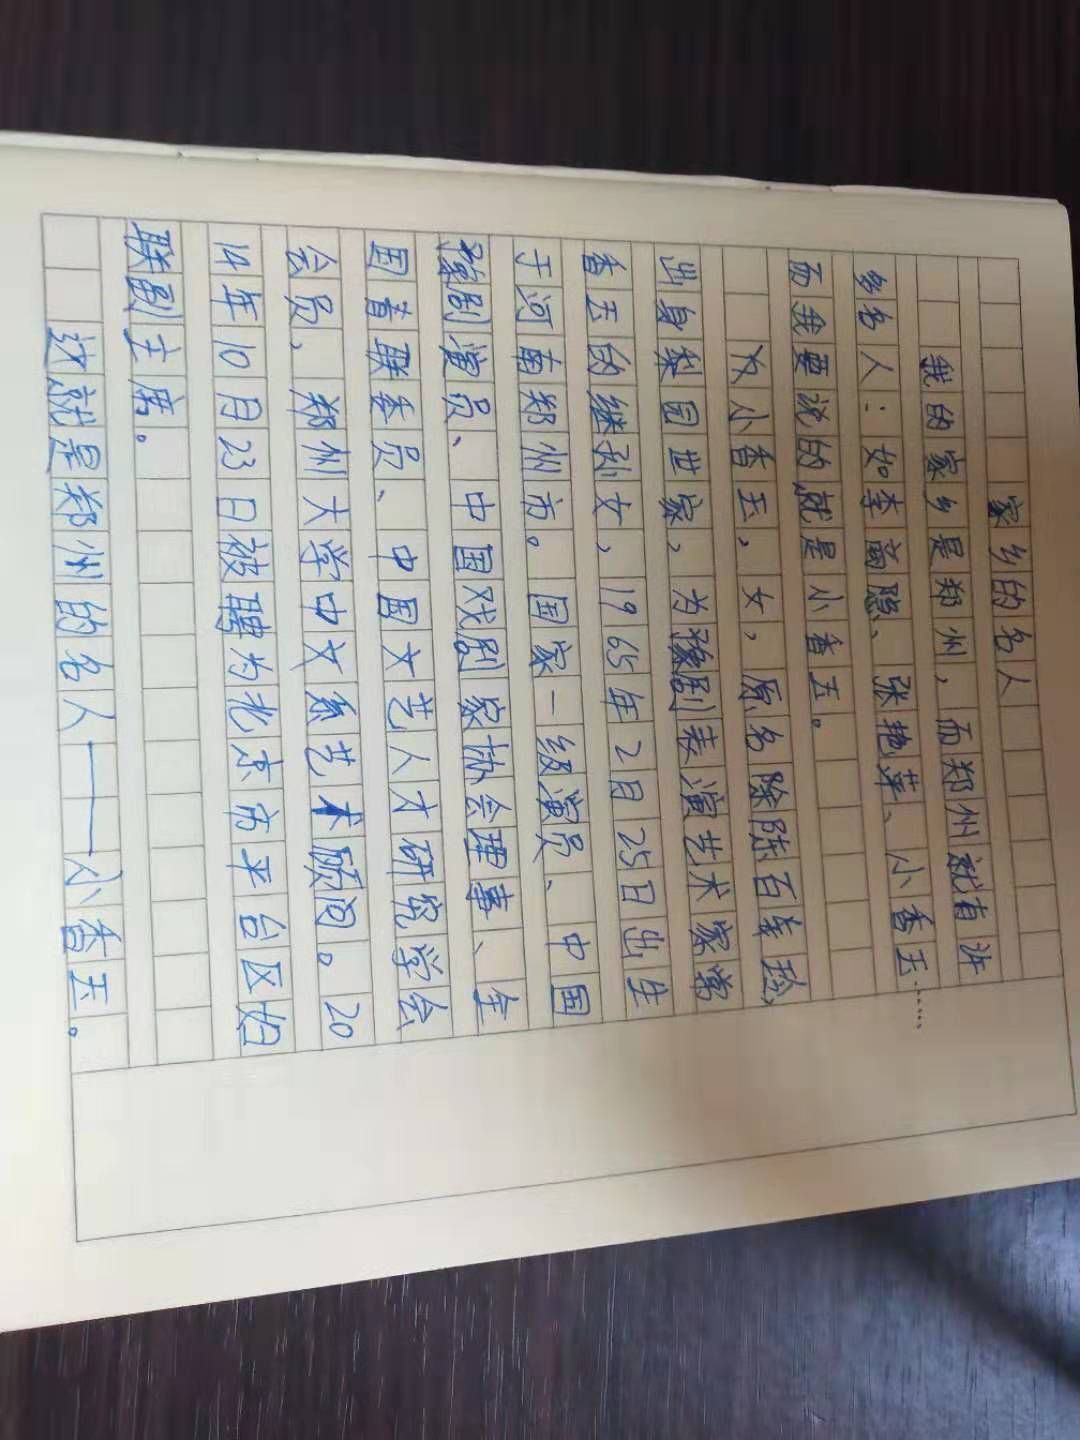 家乡的名人
我的家乡是郑州，而郑州就有许
多名人：如李商隐、张艳萍、小香玉……
而我要说的就是小香玉。
小香玉，女，原名陈百玲，
出身梨园世家，为豫剧表演艺术家常
香玉的继孙女，1965年2月25日出生
于河南郑州市。国家一级演员、中国
豫剧演员、中国戏剧家协会理事、全
国青联委员、中国女艺人才研究学会
会员，郑州大学中文系艺术顾问。20
14年10月23日被聘为北京市平台区妇
联副主席。
这就是郑州的名人——小香玉。